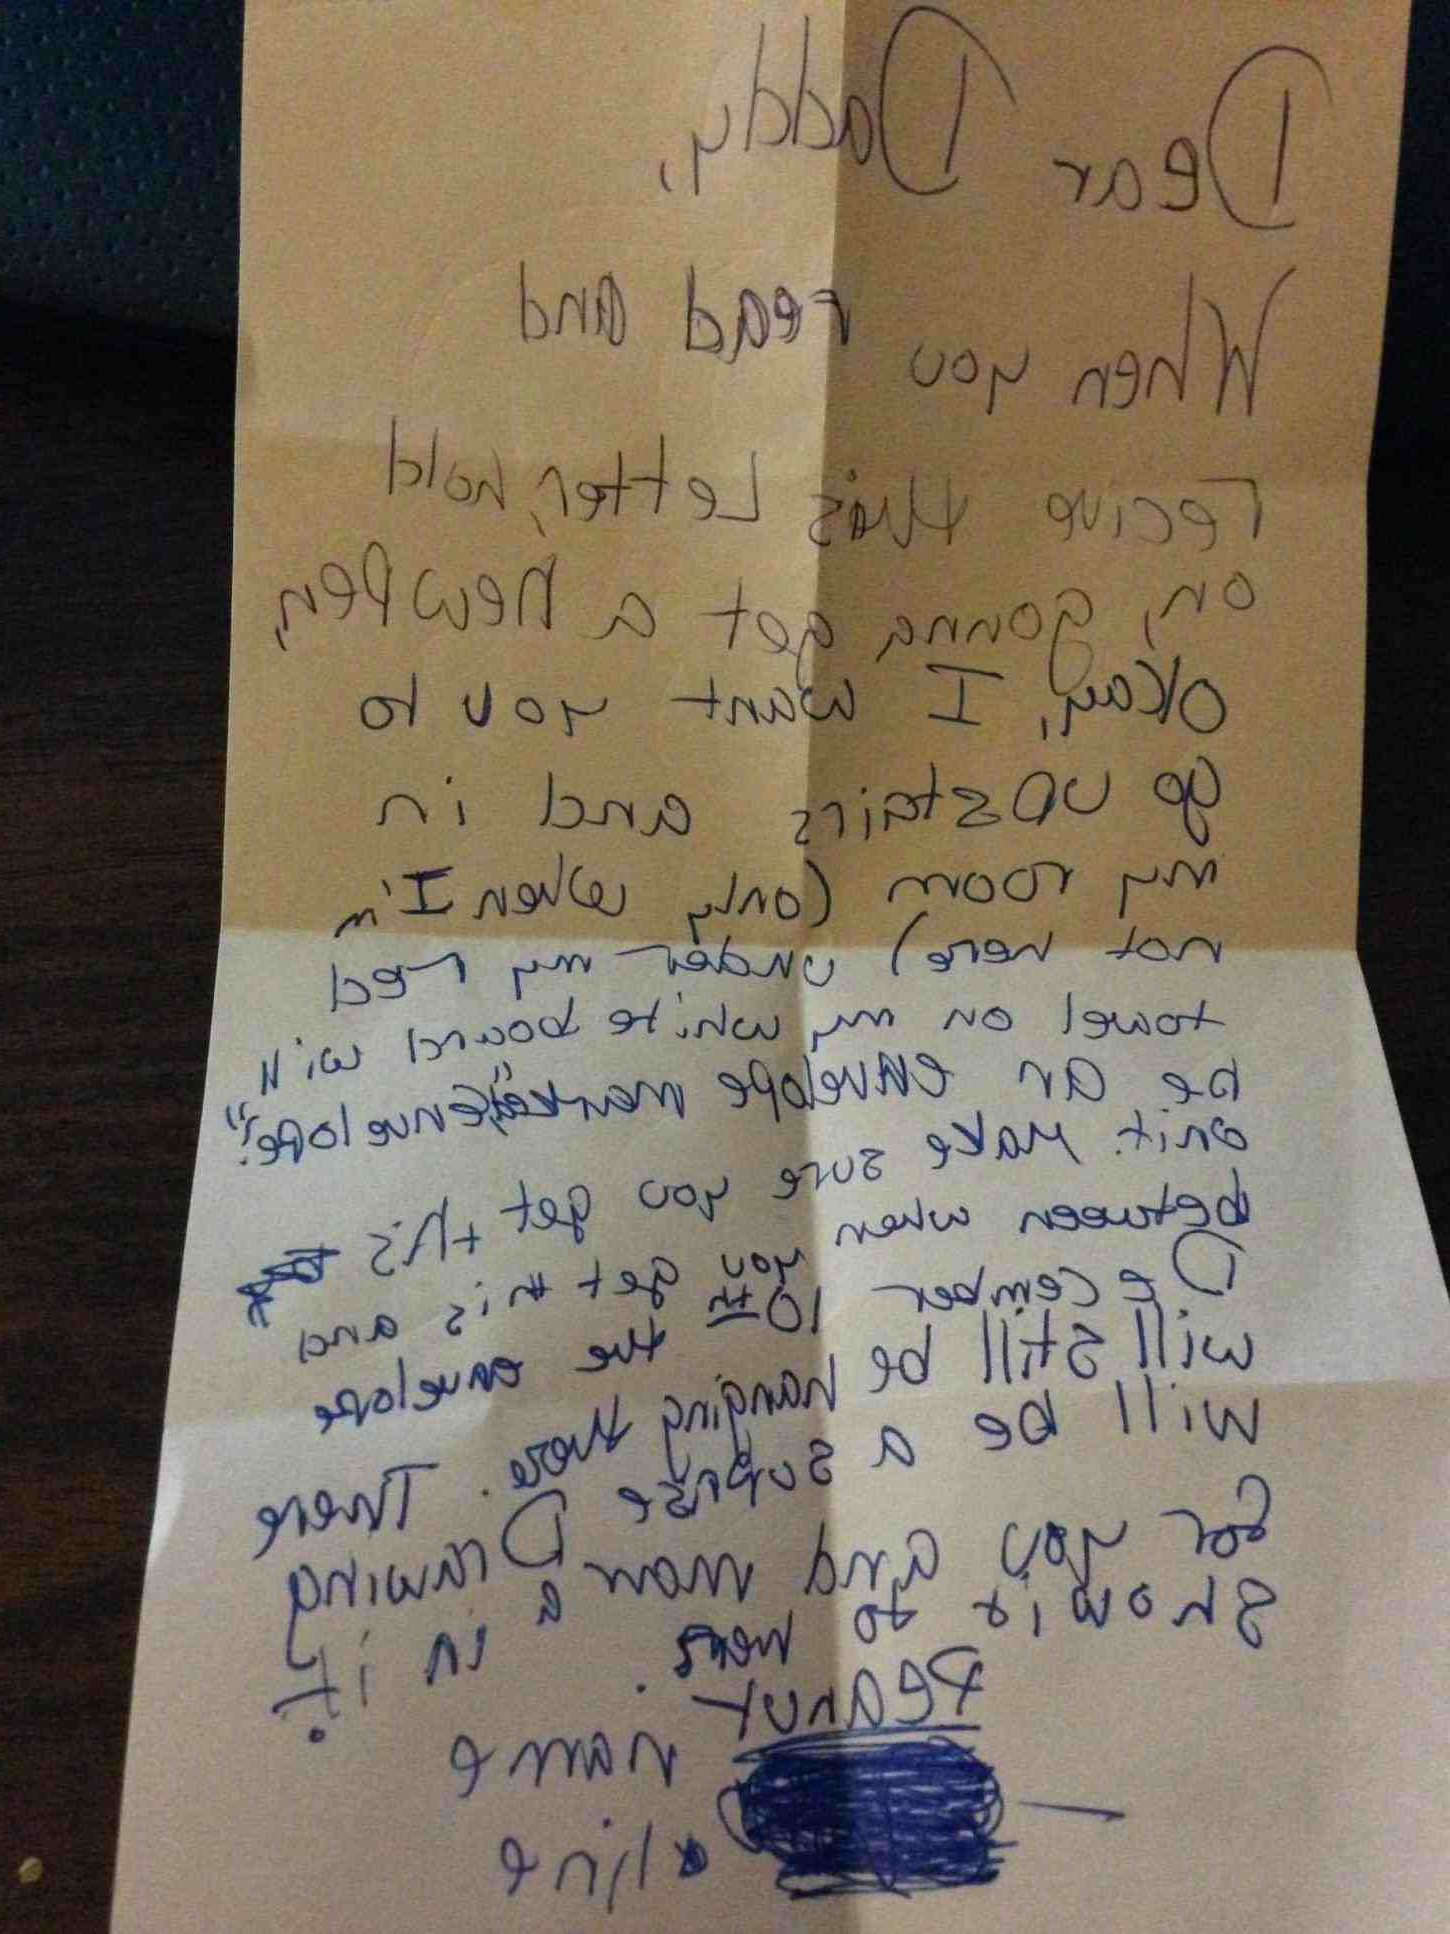 Dear Daddy,
When you read and
recive this Letter, hold
on, gonna get a new pen,
okay, I want you to
go upstairs and in
my room (only when I'm
not here) under my red
towel on my white board will
be an envelope marked, "Envelope"
on it. Make sure you get this
between when you get this and
December 10th the envelope
will still be hanging there. There
will be a suprise Drawing
for you and mom in it.
Show it to her.
Peanut
name